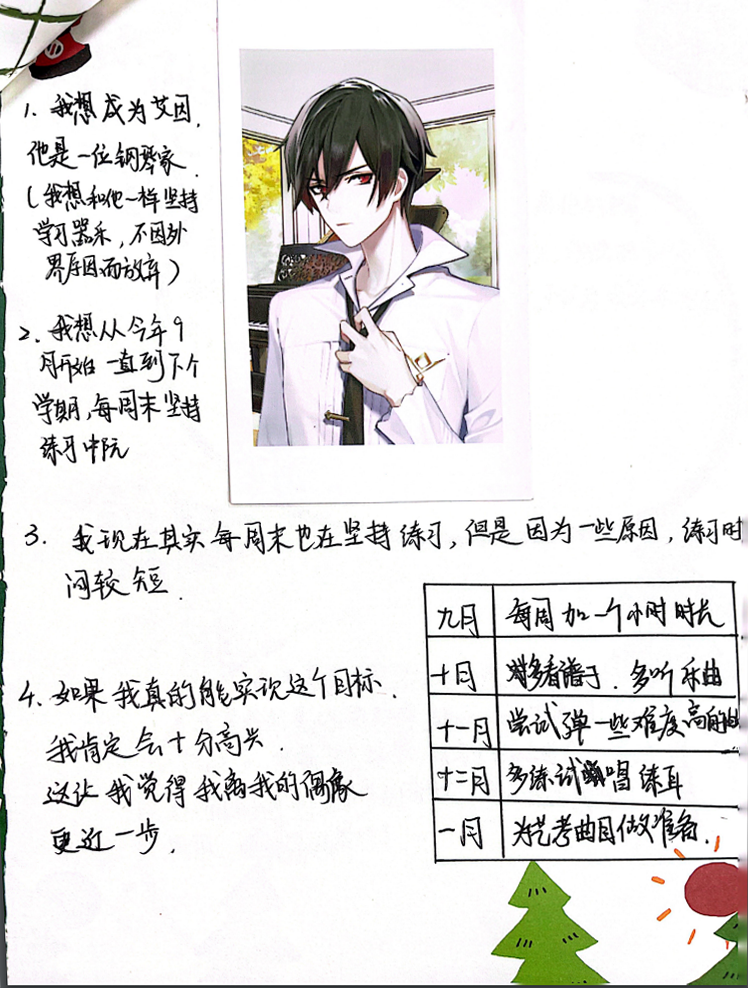 1. 我想成为艾因,
他是一位钢琴家.
(我想和他一样坚持
学习器乐,不因外
界原因而放弃)
2. 我想从今年9
月开始一直到下个
学期,每周末坚持
练习中阮
3. 我现在其实每周末也在坚持练习,但是因为一些原因,练习时
间较短.
九月 每周加一个小时时长
十月 多看谱子.多听乐曲
十一月 尝试弹一些难度高的曲
十二月 多练试唱练耳
一月 为艺考曲目做准备.
4. 如果我真的能实现这个目标.
我肯定会十分高兴.
这让我觉得我离我的偶像
更近一步.